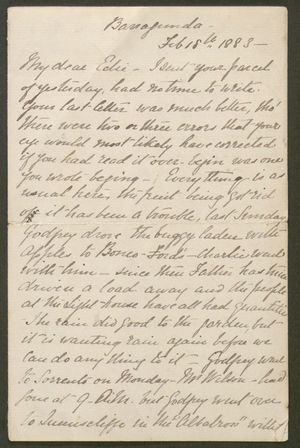 Barragunda -
Feb 15th 1883 -
My dear Edie - I sent your parcel
of yesterday, had no time to write.
Your last letter was much better, tho'
there were two or three errors that your
eye would most likely have corrected
if you had read it over - begin was one
you wrote beging - Everything is as
usual here, the fruit being got rid
off it has been a trouble, last Sunday
Godfrey drove the buggy laden with
Apples to Boneo - Fords - Charlie went
with him - since then Father has
driven a load away and the people
at the Light house have all had quantities
The rain did good to the garden, but
it is wanting rain again before we
can do anything to it - Godfrey went
to Sorrento on Monday - Mr Wilson had
gone at 9 - A.M. but Godfrey went over
to Queenscliffe in the "Albatross" with